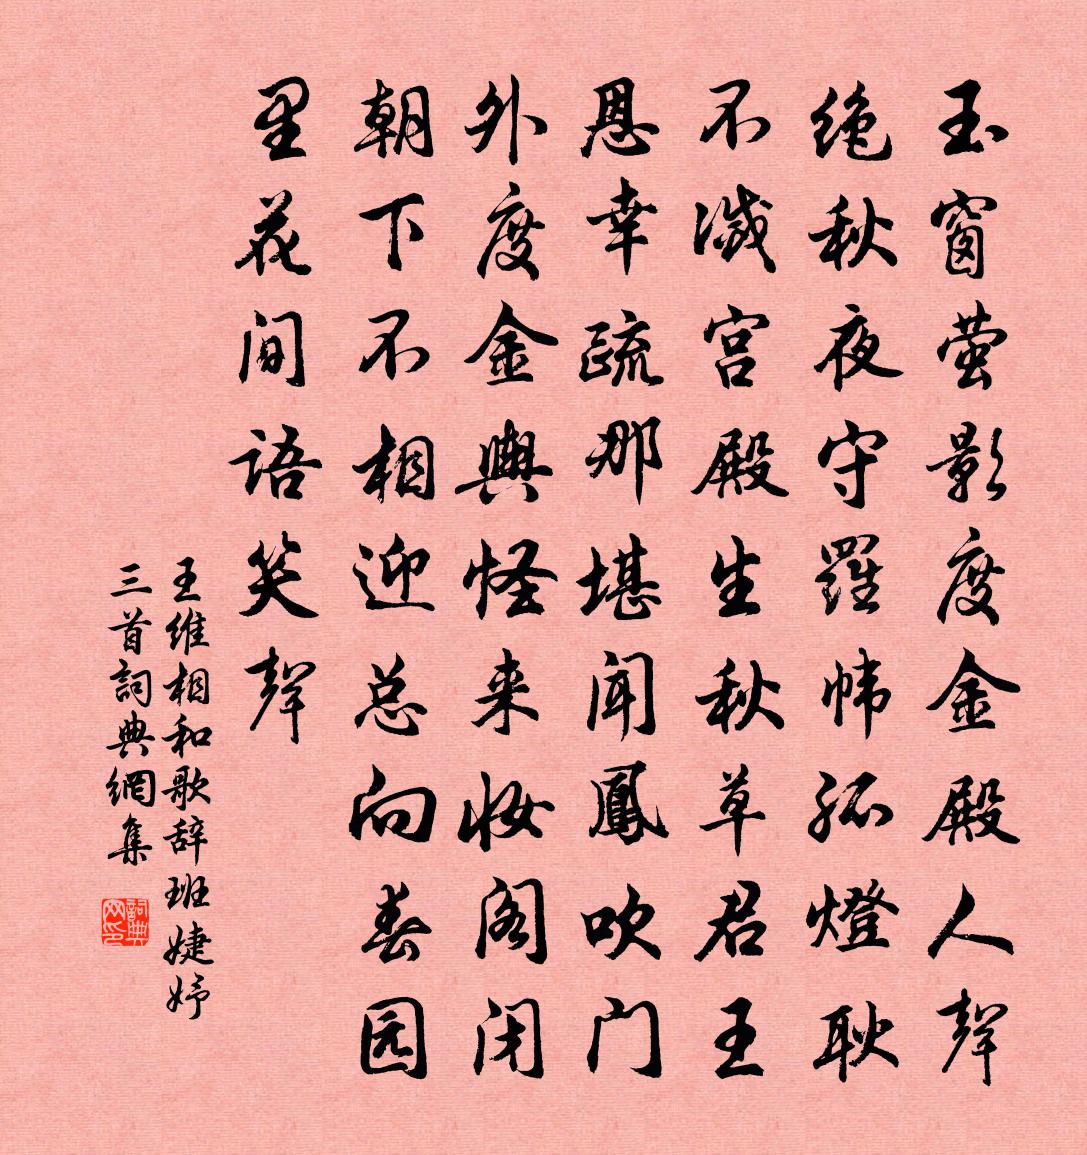 玉窗萤影度金殿人聲
绝秋夜守羅帏孤燈耿
不滅宫殿生秋草君王
恩幸疏那堪闻鳳吹门
外度金輿怪来妆阁闭
朝下不相迎总向春园
里花间语笑聲
王维相和歌辞班婕妤
三首詞典網集
詞典
网印